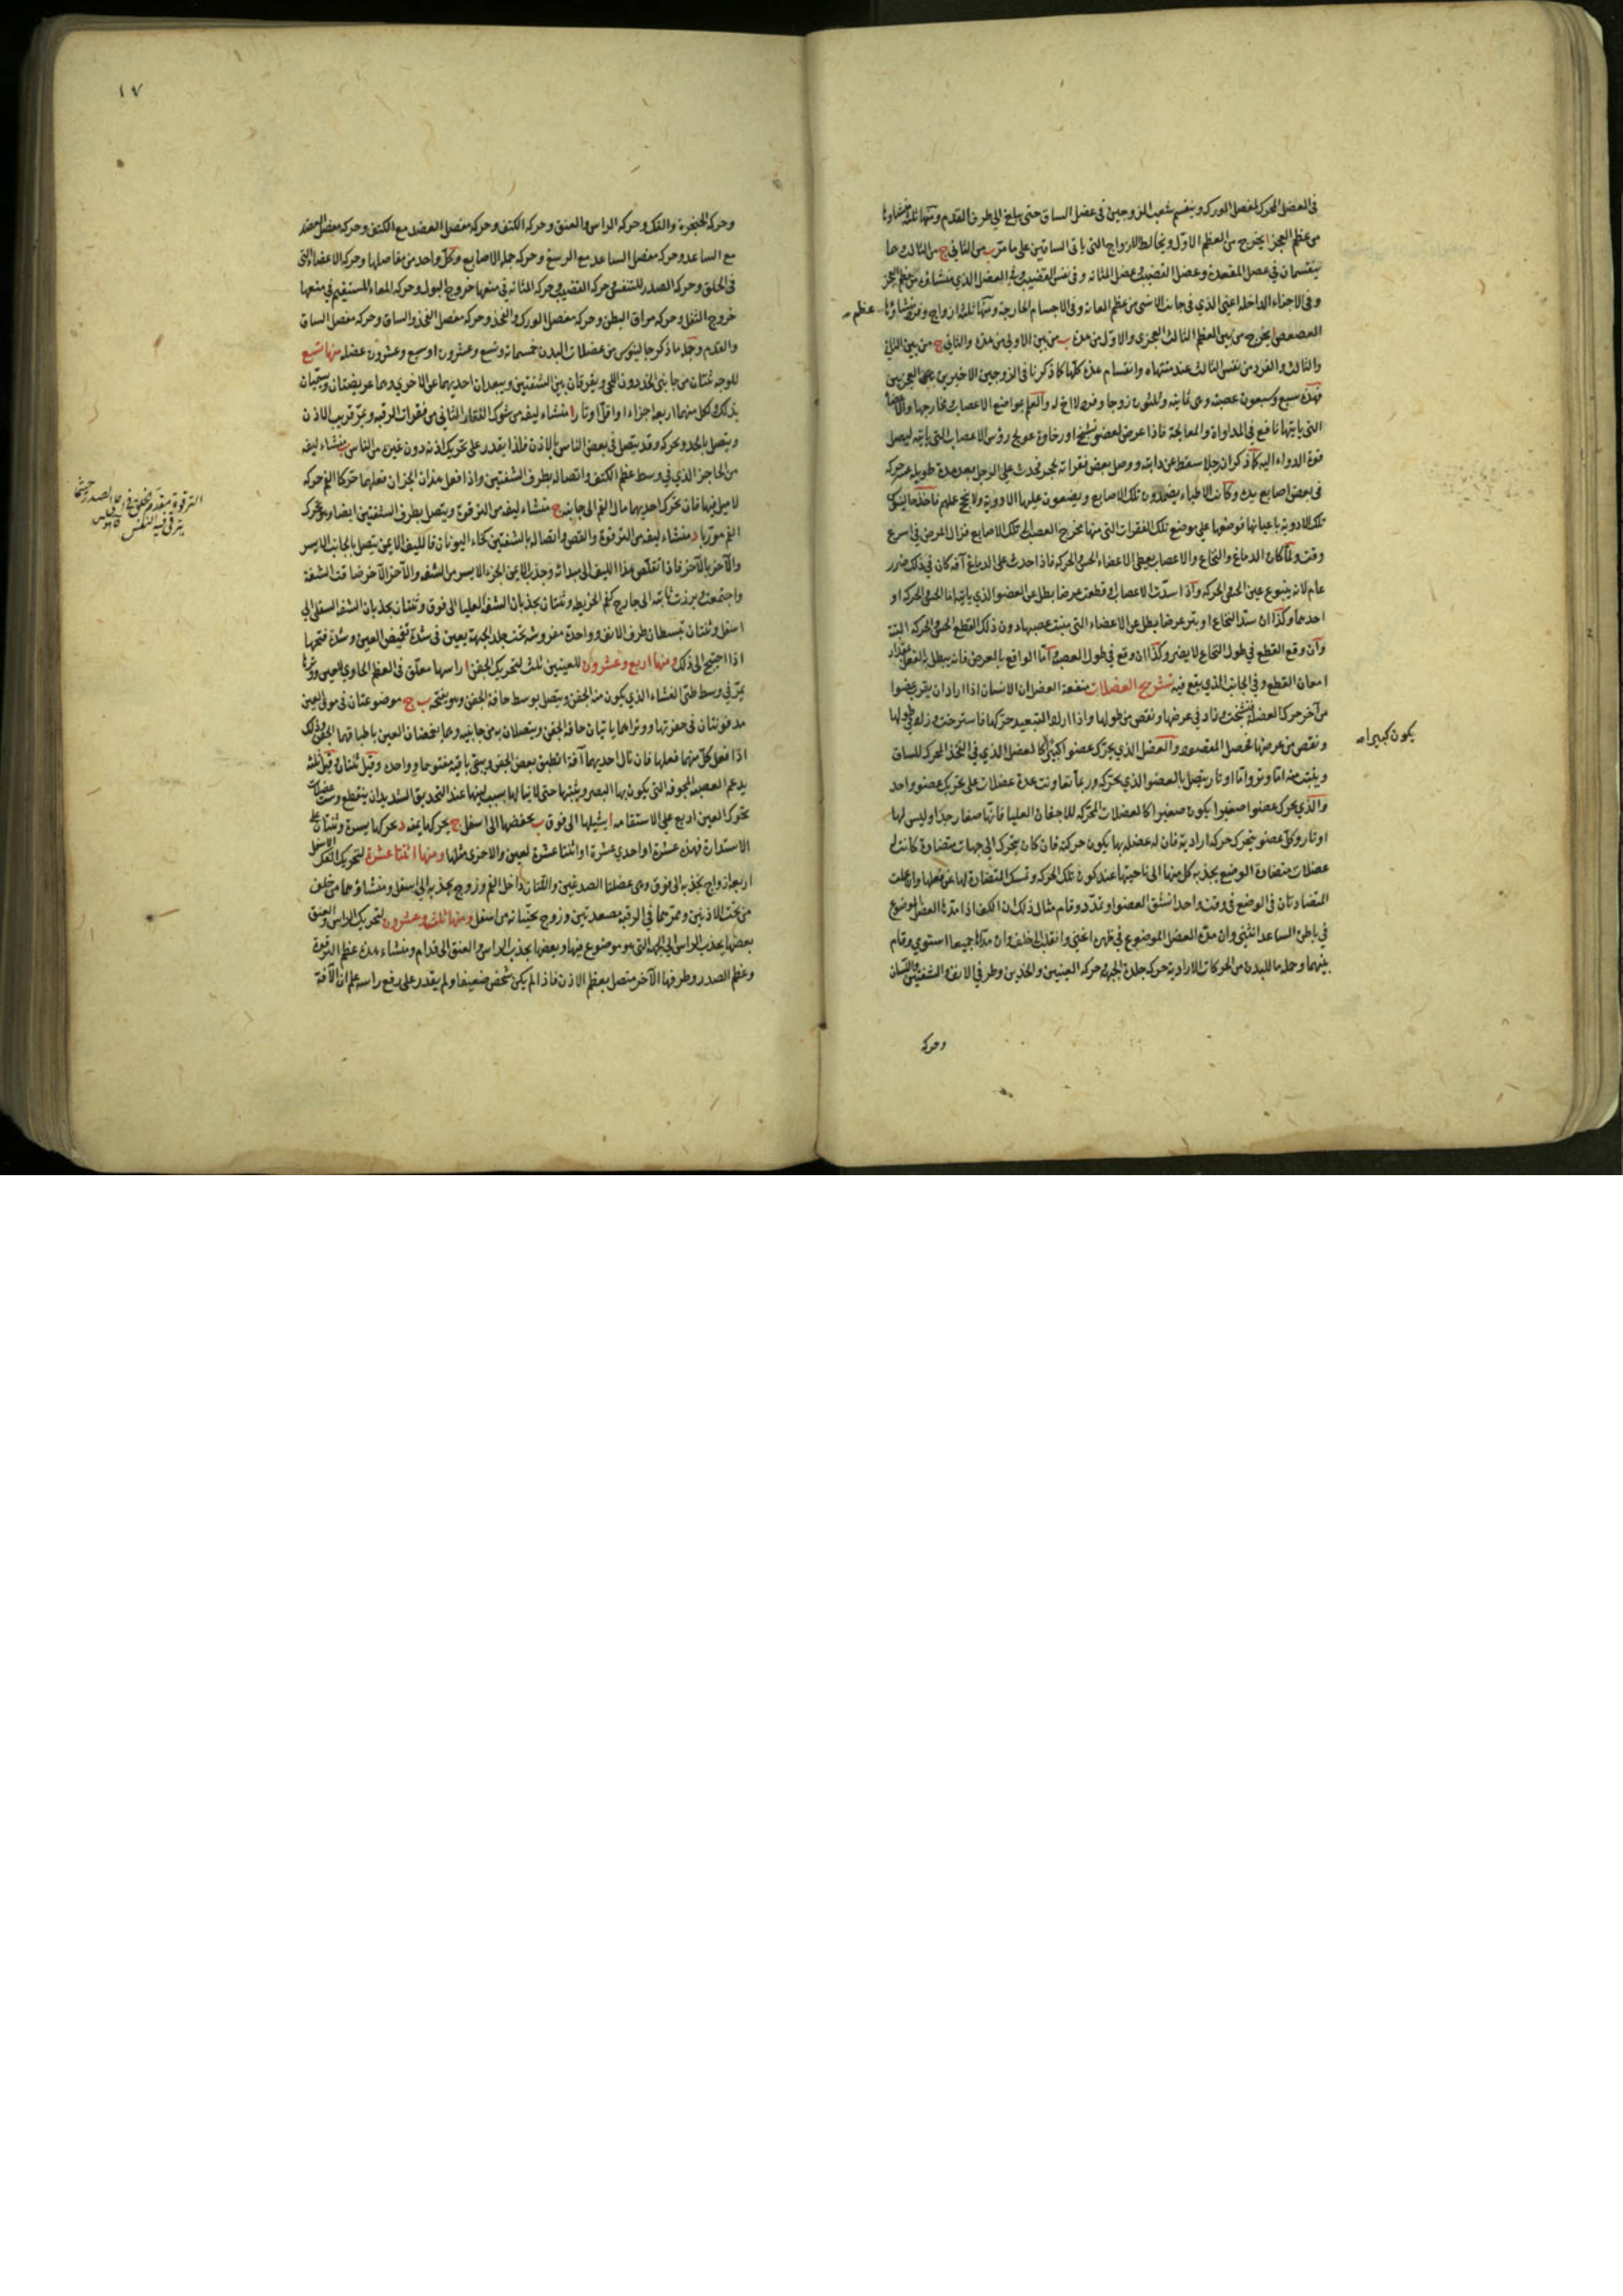 فى العضل المحرك لمفصل الورك وينقسم شعب الزوجين فى عضل الساق حتى يبلغ الى طرف القدم ومنها ثلثة منشاؤها
من عظم العجز ا يخرج من العظم الاوّل ويخالط الازواج التى ياتى الساقين على ما مرّ ب من الثانى ج من الثالث وهما
ينقسمان فى عضل المقعدة وعضل القضيب وعضل المثانه وفى نفس القضيب وفى العضل الذى منشاؤه من عظم العجز
وفى الاجزاء الداخله اعنى الذي فى جانب الانسى من عظم العانه وفى الاجسام الخارجة ومنها ثلثة ازواج وفرد منشاؤها عظم
العصعص ا يخرج من بين العظم الثالث العجزى والاوّل من هذه ب من بين الاولى من هذه والثانى ج من بين الثانى
والثالث والفرد من نفس الثالث عند منتهاه وانقسام هذه كلّها كما ذكرنا فى الزوجين الاخيرين من العجزيين
فهذه سبع وسبعون عصبته وهى ثمانيه وثلثون زوجا وفرد لا اخ له والعلم بمواضع الاعصاب ومخارجها والاعضا
التى ياتيها نافع فى المداواة والمعالجة فاذا عرض لعضو تشنج او رخاوة عولج رؤس الاعصاب التى ياتيه ليصل
قوة الدواء اليه كما ذكر ان رجلا سقط عن دابته ووصل بعض فقراته بحجر فحدث على الرجل بعد مدة طويله عسر حركة
فى بعض اصابع يده وكانت الاطباء يضمدون تلك الاصابع ويضعون عليها الادوية ولا ينجح عليهم فاخذ جالينوس
تلك الادوية باعيانها فوضعها على موضع تلك الفقرات التى منها مخرج العصب الى تلك الاصابع فزال المرض فى اسرع
وقت ولما كان الدماغ والنخاع والاعصاب يعطى الاعضاء الحس والحركه فاذا حدث على الدماغ آفة كان فى ذلك ضرر
عام لانه ينبوع عين الحس والحركه واذا سدّت الاعصاب او قطعت عرضا بطل عن العضو الذي ياتيه اما الحس والحركه او
احدهما وكذا ان سدّ النخاع او بتر عرضا بطل عن الاعضاء التى ينبت عصبها دون ذلك القطع الحس والحركه البتة
وان وقع القطع فى طول النخاع لا يضر وكذا ان وقع فى طول العصب واما الواقع بالعرض فانه يبطل بالفعل بمقدار
امعان القطع وفى الجانب الذي يقع فيه تشريح العضلات منفعة العضل ان الانسان اذا اراد ان يقرب عضوا
من آخر حرك العضلة فتشنجت وزاد فى عرضها ونقص من طولها واذا اراد التبعيد حرّكها فاسترخت وزاد فى طولها
ونقص من عرضها فحصل المقصود والعضل الذي يحرك عضوا كبيرا كالعضل الذي فى الفخذ المحرك للساق
يكون كبيرا صـ
وينبت منه اما وتر واما اوتار يتصل بالعضو الذي يحركه وربما تعاونت عدة عضلات على تحريك عضو واحد
والذي يحرك عضوا صغيرا يكون صغيرا كالعضلات المحركه للاجفان العليا فانها صغار جدا وليس لها
اوتار وكل عضو يتحرك حركه ارادية فان له عضله بها يكون حركته فان كان يتحرك الى جهات متضادة كانت له
عضلات متضادة الوضع يجذبه كل منها الى ناحيتها عند كون تلك الحركه وتمسك المتضادة لها عن فعلها وان عملت
المتضادتان فى الوضع فى وقت واحد انشق العضو او تمدّد وقام مثال ذلك ان الكف اذا مدّه العضل الموضوع
فى باطن الساعد انثنى وان مدّه العضل الموضوع فى ظهره انثنى وانقلب الى خلف وان مدّاه جميعا استوي وقام
بينهما وجمله ما للبدن من الحركات الارادية حركه جلدة الجبهة وحركه العينين والخدين وطرفى الانف والشفتين واللسان
وحركه
١٧
وحركه الحنجرة والفك وحركه الراس والعنق وحركه الكتف وحركه مفصل العضد مع الكتف وحركه مفصل العضد
مع الساعد وحركه مفصل الساعد مع الرسغ وحركه جملة الاصابع وكل واحد من مفاصلها وحركه الاعضاء التى
فى الحلق وحركه الصدر للتنفس وحركه القضيب وحركه المثانه فى منعها خروج البول وحركه المعاء المستقيم فى منعها
خروج الثفل وحركه مراق البطن وحركه مفصل الورك والفخذ وحركه مفصل الفخذ والساق وحركه مفصل الساق
والقدم وجملة ما ذكر جالينوس من عضلات البدن خمسمائة وتسع وعشرون او سبع وعشرون عضله منها تسع
للوجه ثنتان من جانبى الخد دون اللحى ويفرقان بين الشفتين ويبعدان احديهما عن الاخري وهما عريضتان ويسمّيان
بذلك ولكل منهما اربعة اجزاء او اقل اوتارا ا منشاء ليفه من شوك الفقار الثانى من فقرات الرقبه ويمرّ قريب الاذن
ويتصل بالخد ويحركه وقد يتصل فى بعض الناس بالاذن فلذا يقدر على تحريك اذنه دون غيره من الناس ب منشاء ليفه
من الحاجز الذي فى وسط عظم الكتف واتصاله بطرف الشفتين واذا فعل هذان الجزءان فعلهما تحركا الفم حركه
لا ميل فيها فان تحرك احديهما مال الفم الى جانبه ج منشاء ليفه من الترقوة ويتصل بطرف الشفتين ايضا وهو يحرك
الفم موربا د منشاء ليفه من الترقوة والقص واتصاله بالشفتين كخاء اليونان فالليف الايمن يتصل بالجانب الايسر
والآخر بالآخر فاذا تقلّص هذا الليف الى مبدائه وجذب الايمن الجزء الايسر من الشفه والآخر الآخر ضاقت الشفة
واجتمعت وبرزت ثابته الى خارج كفم الخريطه وثنتان يجذبان الشفة العليا الى فوق وثنتان يجذبان الشفه السفلى الى
اسفل وثنتان تبسطان طرف الانف وواحدة مفروشه تحت جلد الجبهة يعين فى شدة تغميض العين وشدة فتحها
اذا احتيج الى ذلك ومنها اربع وعشرون للعينين ثلث لتحريك الجفن ا راسها معلق فى العظم الحاوي للعين ووترها
يمرّ فى وسط طى الغشاء الذي يكون منه الجفن ويتصل بوسط حافة الجفن وهو يفتحه ب ج موضوعتان فى موقى العين
مدفونتان فى حفرتها ووتراهما ياتيان حافة الجفن ويتصلان به من جانبيه وهما يغمضان العين باطباقهما الجفن وذلك
اذا فعل كل منهما فعلها فان نال احديهما آفة انطبق بعض الجفن ويبقى باقيه مفتوحا وواحده وقيل ثنتان وقيل ثلثة
يدعم العصبة المجوفة التى يكون بها البصر ويثبتها حتى لا ينالها بسبب لينها عند التحديق الشديد ان ينقطع وست عضلات
تحرك العين اربع على الاستقامه ا يشيلها الى فوق ب يخفضها الى اسفل ج يحركها يمنه د يحركها يسرة وثنتان على
الاستدارة فهذه عشرة او احدي عشرة او اثنتا عشرة لعين والاخرى مثلها ومنها اثنتا عشرة لتحريك الفك الاسفل
اربعة ازواج يجذبه الى فوق وهى عضلتا الصدغين واللتان داخل الفم وزوج يجذبه الى اسفل ومنشاؤهما من خلف
من تحت الاذنين وممرّهما فى الرقبه مصعدتين وزوج يحنّيانه من اسفل ومنها ثلث وعشرون لتحريك الراس والعنق
بعضها يجذب الراس الى الجهة التى هو موضوع فيها وبعضها يجذب الراس والعنق الى قدام ومنشاء هذه عظم الترقوة
وعظم الصدر وطرفها الآخر متصل بعظم الاذن فاذا لم يكن شخص ضعيفا ولم يقدر على رفع راسه علم ان الآفة
الترقوة مقدم الحلق فى اعلى الصدر حيثما
يترقى فيه النفس